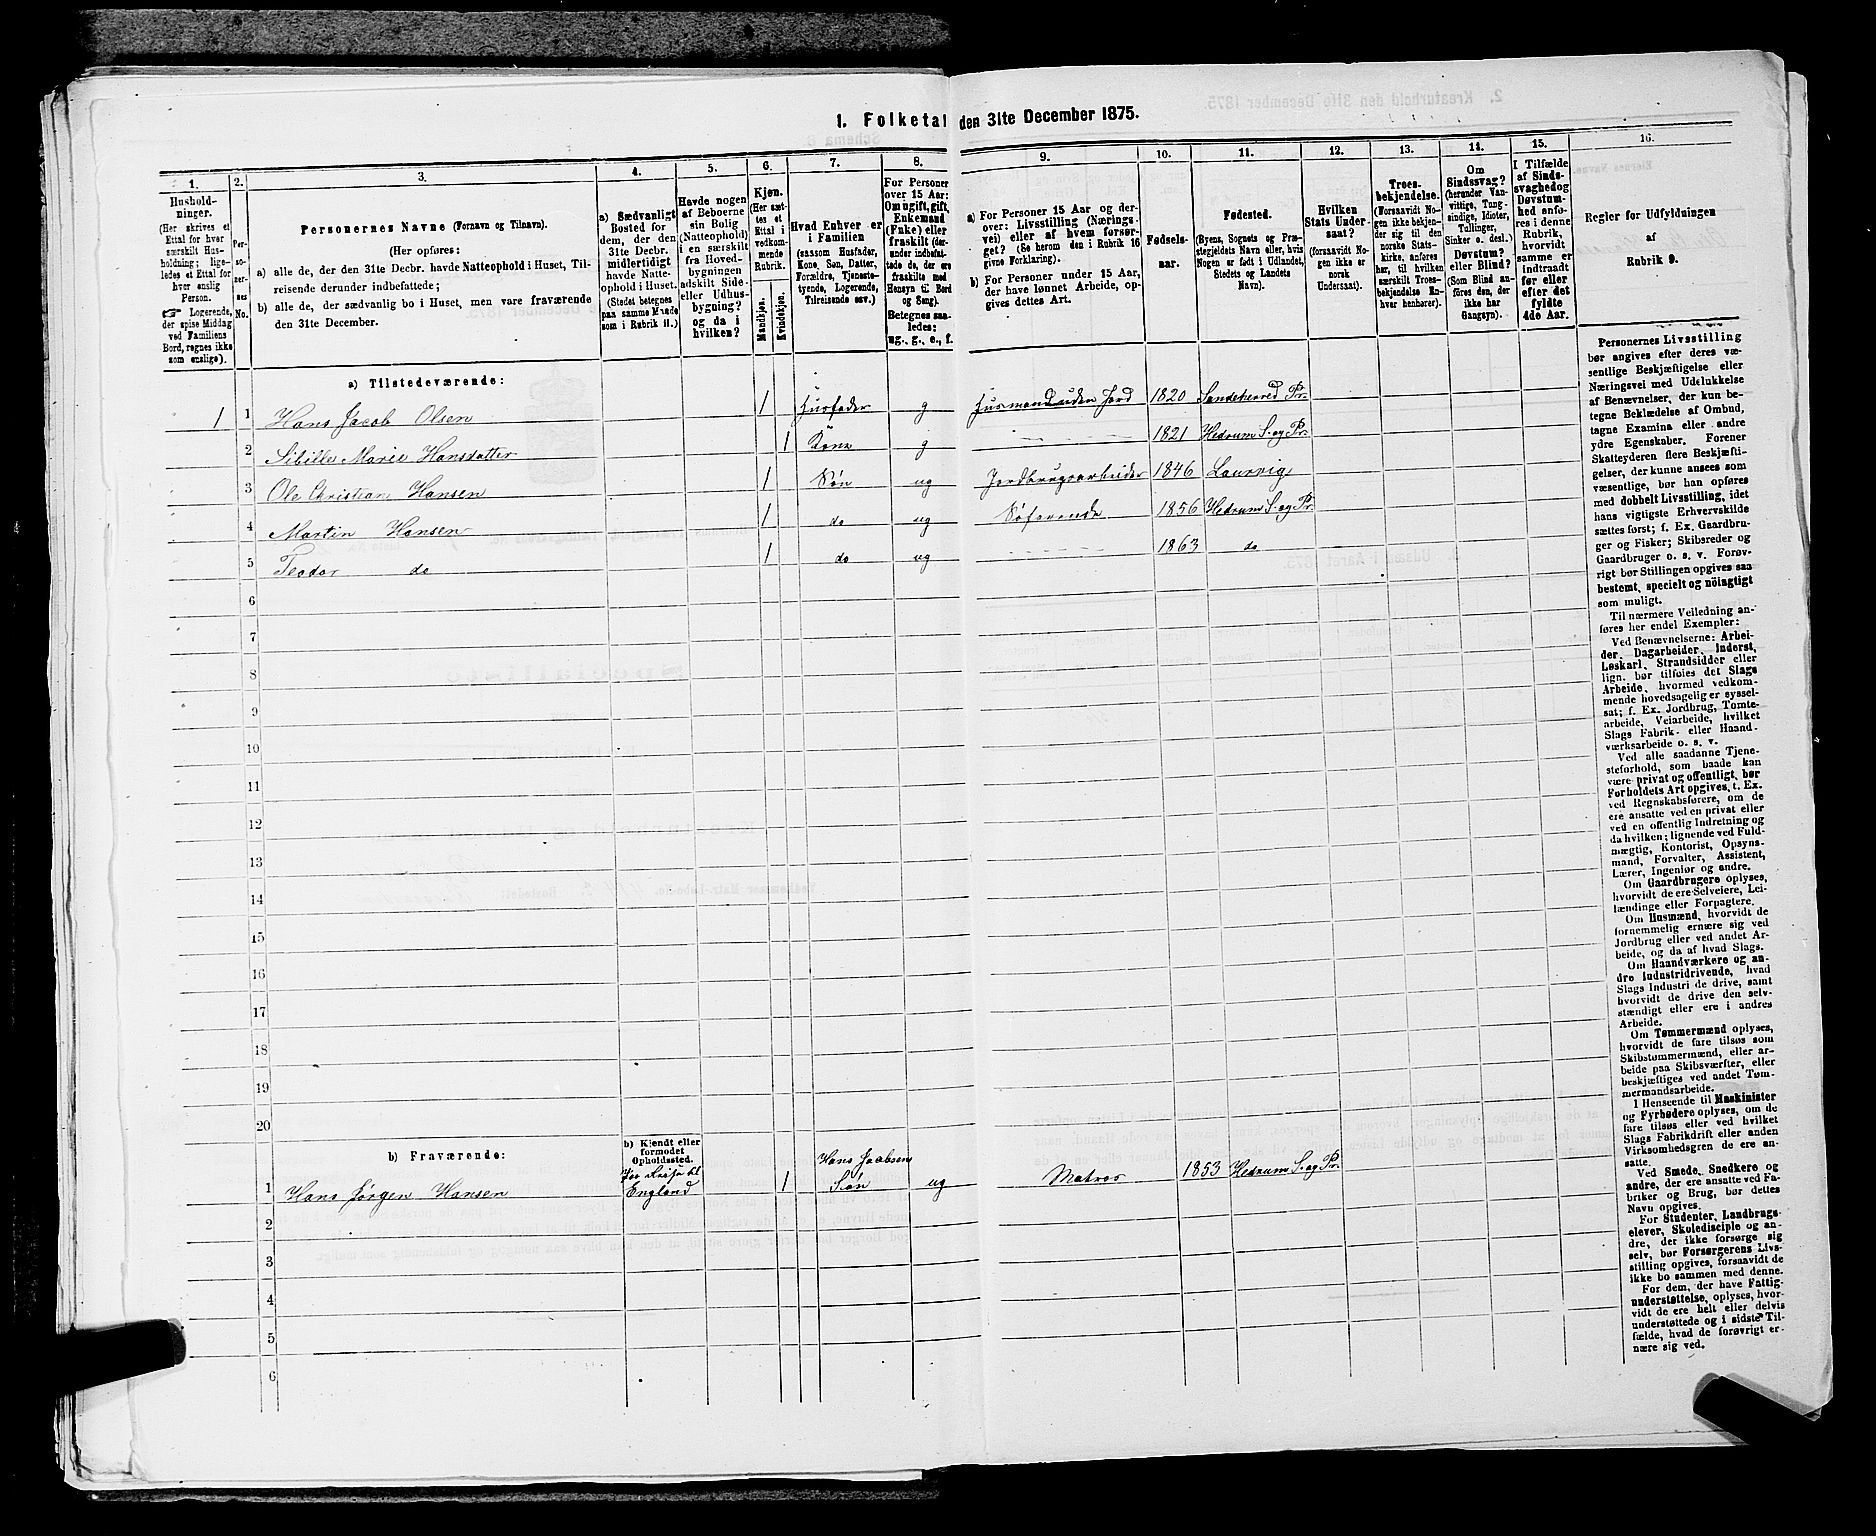 1. Folketal den 31te December 1875.
1.
Hushold-
ninger.
(Her skrives et
Ettal for hver
særskilt Hus-
holdning; lige-
ledes et Ettal for
hver enslig
Person.
☞ Logerende,
der spise Middag
ved Familiens
Bord, regnes ikke
som enslige).
2.
Per-
so-
ner-
nes
No.
3.
Personernes Navne (Fornavn og Tilnavn).
(Her opføres:
a) alle de, der den 31te Decbr. havde Natteophold i Huset, Til-
reisende derunder indbefattede;
b) alle de, der sædvanlig bo i Huset, men vare fraværende
den 31te December.
4.
a) Sædvanligt
Bosted for
dem, der den
31te Decbr.
midlertidigt
havde Natte-
ophold i Huset.
(Stedet betegnes
paa samme Maade
som i Rubrik 11.)
5.
Havde nogen
af Beboerne
sin Bolig
(Natteophold)
i en særskilt
fra Hoved-
bygningen
adskilt Side-
eller Udhus-
bygning?
og da i
hvilken?
6.
Kjøn.
(Her sæt-
tes et
Ettal i
vedkom-
mende
Rubrik.
Mandkjøn.
Kvindekjøn.
7.
Hvad Enhver er
i Familien
(saasom Husfader,
Kone, Søn, Datter,
Forældre, Tjeneste-
tyende, Logerende,
Tilreisende osv.)
8.
For Personer
over 15 Aar:
Om ugift, gift,
Enkemand
(Enke) eller
fraskilt (der-
under indbefat-
tede de, der ere
fraskilte med
Hensyn til Bord
og Seng).
Betegnes saa-
ledes:
ug., g., e., f.
9.
a) For Personer 15 Aar og der-
over: Livsstilling (Nærings-
vei) eller af hvem forsør-
get? (Se herom den i Rubrik 16
givne Forklaring).
b) For Personer under 15 Aar,
der have lønnet Arbeide, op-
gives dettes Art.
10.
Fødsels-
aar.
11.
Fødested.
(Byens, Sognets og Præ-
stegjeldets Navn eller, hvis
Nogen er født i Udlandet,
Stedets og Landets
Navn).
12.
Hvilken
Stats Under-
saat?
(forsaavidt No-
gen ikke er
norsk
Undersaat).
13.
Troes-
bekjendelse.
(Forsaavidt No-
gen ikke bekjen-
der sig til den
norske Stats-
kirke, anføres
her, til hvilken
særskilt Troes-
bekjendelse En-
hver henhører).
14.
Om
Sindssvag?
(herunder Van-
vittige, Tung-
sindige, Idioter,
Tullinger,
Sinker o. desl.)
Døvstum?
eller Blind?
(Som Blind an-
føres den, der
ikke har
Gangsyn).
15.
I Tilfælde
af Sinds-
svaghed og
Døvstum-
hed anfø-
res i denne
Rubrik,
hvorvidt
samme er
indtraadt
før eller
efter det
fyldte
4de Aar.
16.
Regler for Udfyldningen
af
Rubrik 9.
a) Tilstedeværende:
1 1 Hans Jacob Olsen 1 Husfader g Husmand uden Jord 1820 Sandeherred Pr.
2 Sibille Marie Hansdatter 1 Kone g 1821 Hedrum S. og Pr.
3 Ole Christian Hansen 1 Søn ug Jordbrugsarbeider 1846 Laurvig
4 Martin Hansen 1 do ug Søfarende 1856 Hedrum S. og Pr.
5 Teodor do 1 do ug 1863 do
6
7
8
9
10
11
12
13
14
15
16
17
18
19
20
b) Fraværende:
b) Kjendt eller
formodet
Opholdssted.
1 Hans Jørgen Hansen
Reise til
England
1
Hans Jacobsens
Søn
ug Matros 1853 Hedrum S. og Pr.
2
3
4
5
6
Personernes Livsstilling
bør angives efter deres væ-
sentlige Beskjæftigelse eller
Næringsvei med Udelukkelse
af Benævnelser, der kun be-
tegne Beklædelse af Ombud,
tagne Examina eller andre
ydre Egenskaber. Forener
Skatteyderen flere Beskjæfti-
gelser, der kunne ansees som
væsentlige, bør han opføres
med dobbelt Livsstilling, idet
hans vigtigste Erhvervskilde
sættes først; f. Ex. Gaardbru-
ger og Fisker; Skibsreder og
Gaardbruger o. s. v. Forøv-
rigt bør Stillingen opgives saa
bestemt, specielt og nöiagtigt
som muligt.
Til nærmere Veiledning an-
føres her endel Exempler:
Ved Benævnelserne: Arbei-
der, Dagarbeider, Inderst,
Løskarl, Strandsidder eller
lign. bør tilføies det Slags
Arbeide, hvormed vedkom-
mende hovedsagelig er syssel-
sat; f. Ex. Jordbrug, Tomte-
arbeide, Veiarbeide, hvilket
Slags Fabrik- eller Haand-
værksarbeide o. s. v.
Ved alle saadanne Tjene-
steforhold, som baade kan
være privat og offentligt, bør
Forholdets Art opgives, t. Ex.
ved Regnskabsførere, om de
ere ansatte ved en privat eller
ved en offentlig Indretning og
da hvilken; lignende ved Fuld-
mægtig, Kontorist, Opsyns-
mand, Forvalter, Assistent,
Lærer, Ingeniør og andre.
Om Gaardbrugere oplyses,
hvorvidt de ere Selveiere, Lei-
lændinge eller Forpagtere.
Om Husmænd, hvorvidt de
fornemmelig ernære sig ved
Jordbrug eller ved andet Ar-
beide, og da af hvad Slags.
Om Haandværkere og an-
dre Industridrivende, hvad
Slags Industri de drive, samt
hvorvidt de drive den selv-
stændigt eller ere i andres
Arbeide.
Om Tømmermænd oplyses,
hvorvidt de fare tilsøs som
Skibstømmermænd, eller ar-
beide paa Skibsværfter, eller
beskjæftiges ved andet Tøm-
mermandsarbeide.
I Henseende til Maskinister
og Fyrbødere oplyses, om de
fare tilsøs eller ved hvilket
Slags Fabrikdrift eller anden
Virksomhedsgren de ere an-
satte.
Ved Smede, Snedkere og
andre, der ere ansatte ved Fa-
briker og Brug, bør dettes
Navn opgives.
For Studenter, Landbrugs-
elever, Skoledisciple og an-
dre, der ikke forsørge sig
selv, bør Forsørgerens Livs-
stilling opgives, forsaavidt de
ikke bo sammen med denne.
For dem, der have Fattig-
understøttelse, oplyses, hvor-
vidt de ere helt eller delvis
understøttede og i sidste Til-
fælde, hvad de forøvrigt er-
nære sig ved.